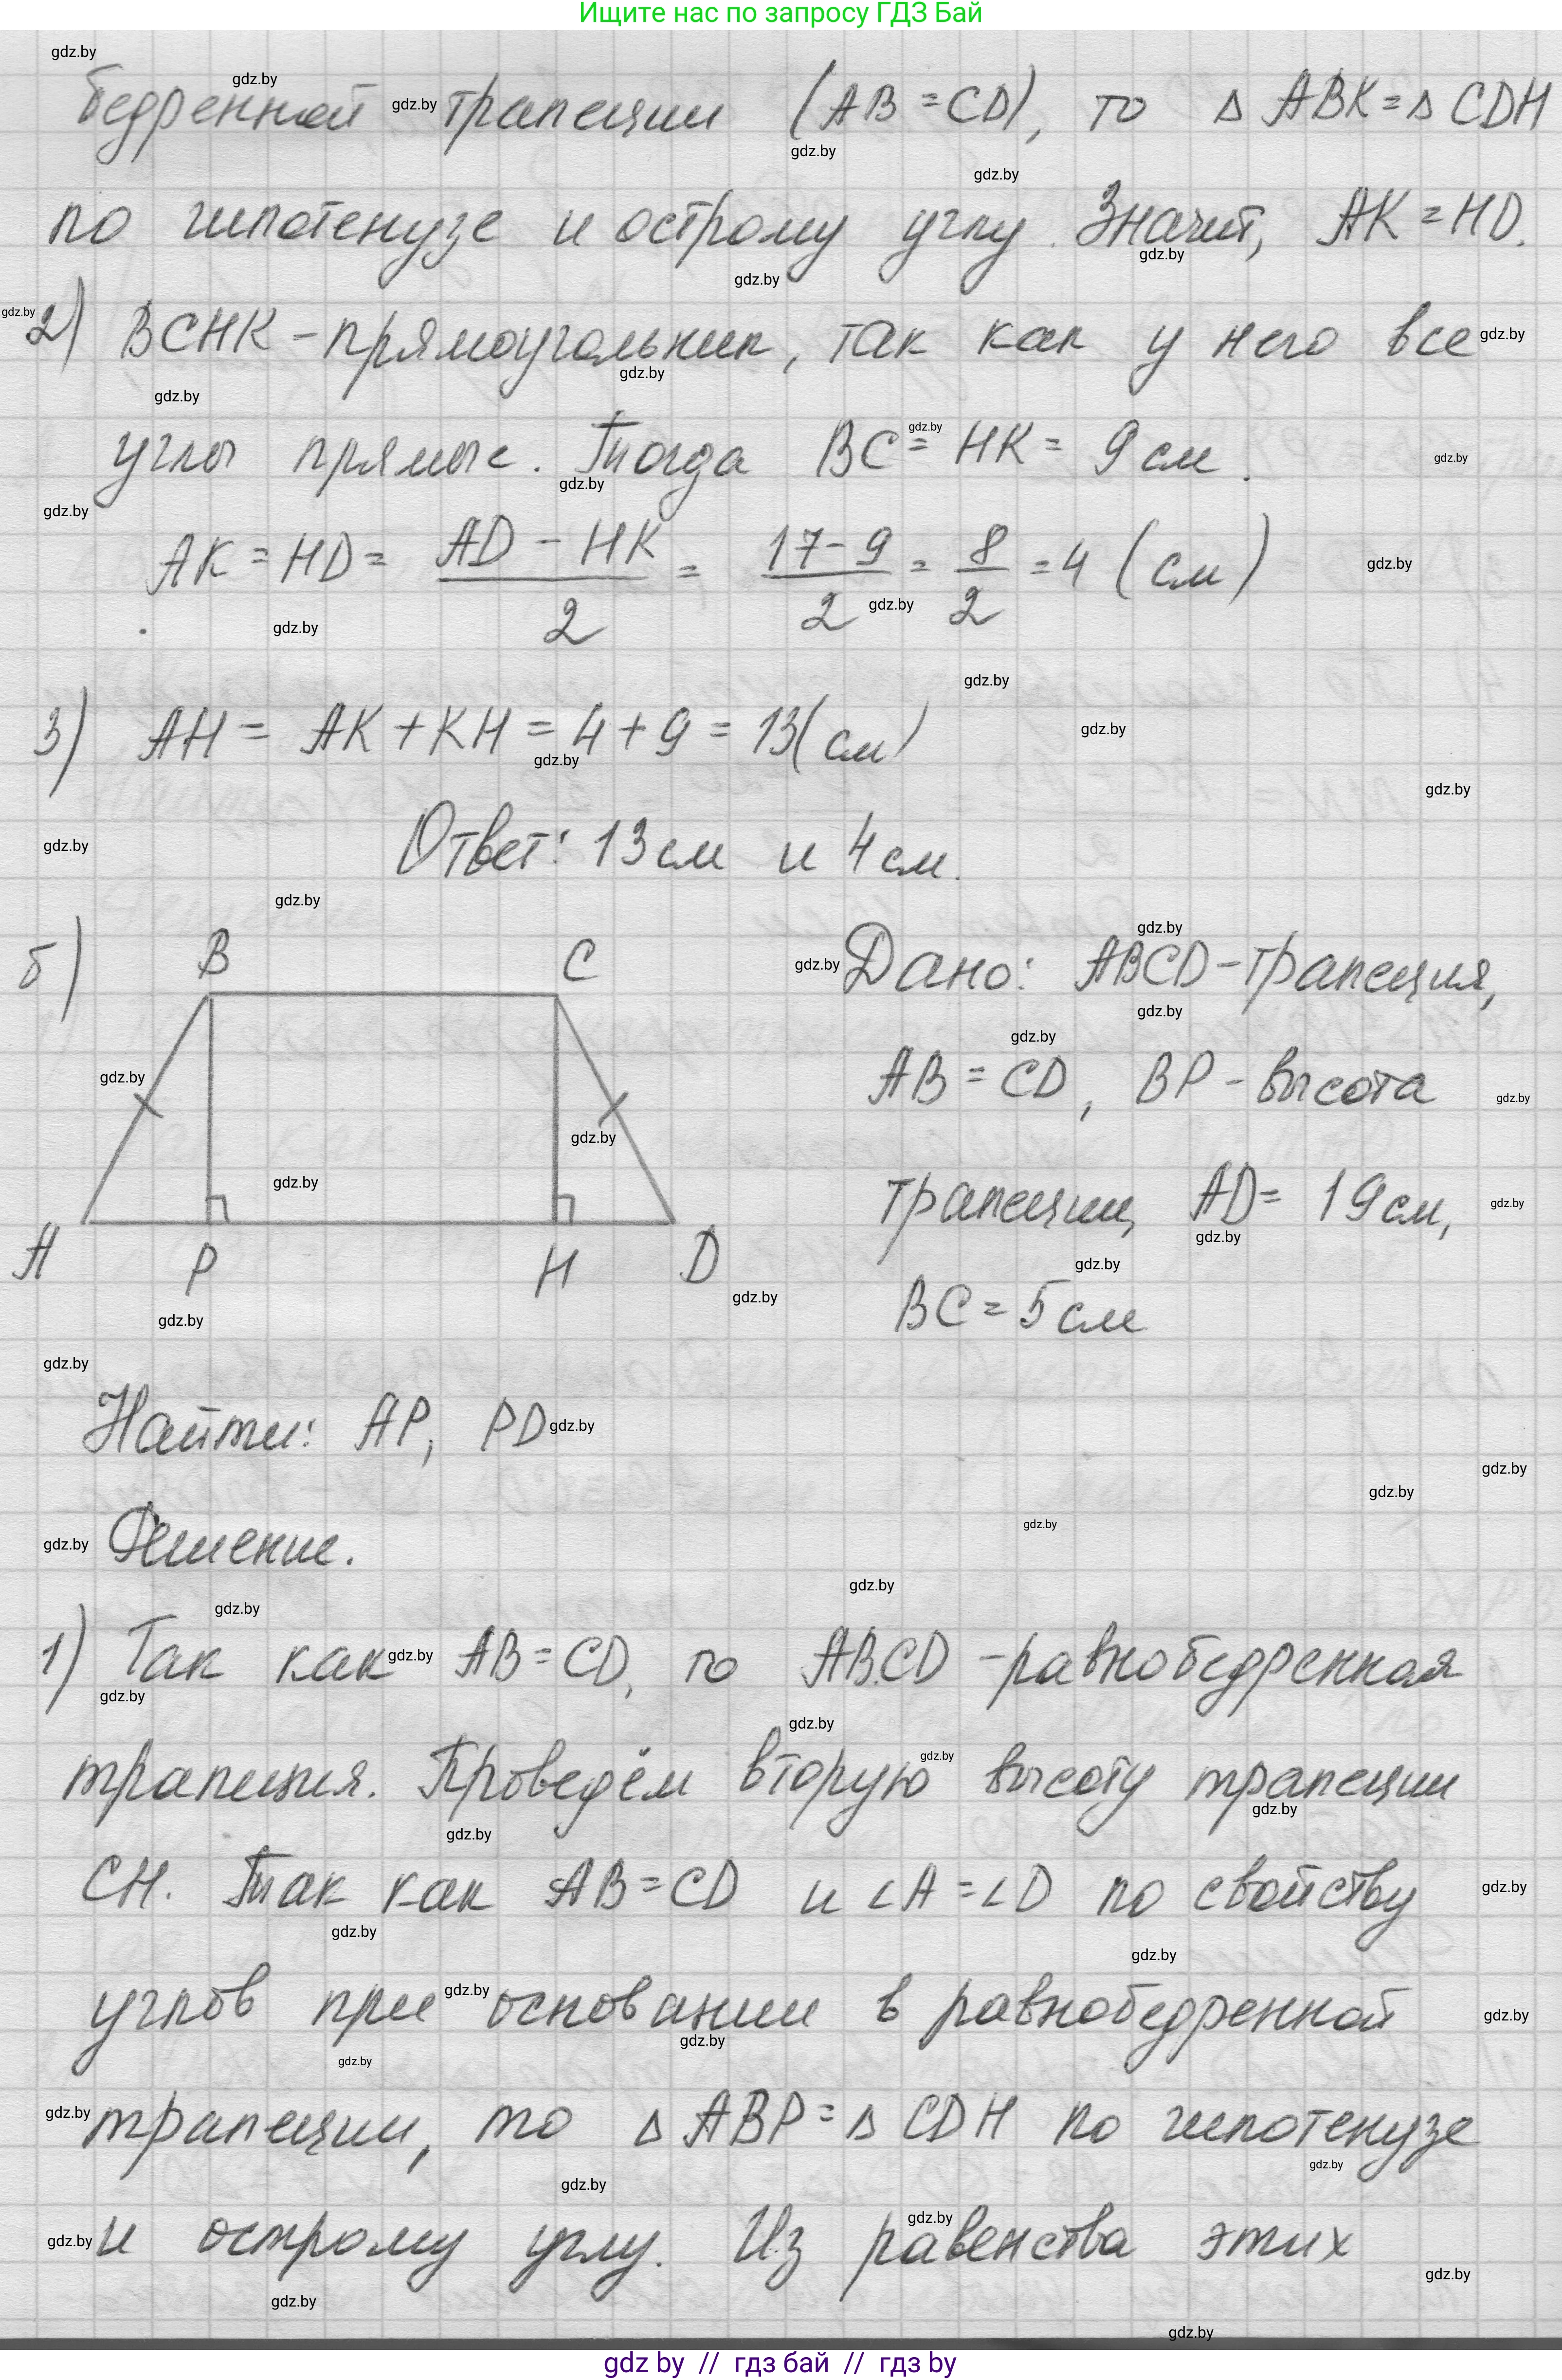 Ищите нас по запросу ГДЗ Бай
бедренной трапеции (AB = CD), то Δ ABK = Δ CDH
по гипотенузе и острому углу. Значит, AK = HD.
2) BCHK - прямоугольник, так как у него все
углы прямые. Тогда BC = HK = 9 см.
AK = HD = (AD - HK)/2 = (17 - 9)/2 = 8/2 = 4 (см)
3) AH = AK + KH = 4 + 9 = 13 (см)
Ответ: 13 см и 4 см.
б)
B C
A P H D
Дано: ABCD - трапеция,
AB = CD, BP - высота
трапеции, AD = 19 см,
BC = 5 см
Найти: AP, PD
Решение.
1) Так как AB = CD, то ABCD - равнобедренная
трапеция. Проведём вторую высоту трапеции
CH. Так как AB = CD и ∠A = ∠D по свойству
углов при основании в равнобедренной
трапеции, то Δ ABP = Δ CDH по гипотенузе
и острому углу. Из равенства этих
gdz by // гдз бай // гдз by